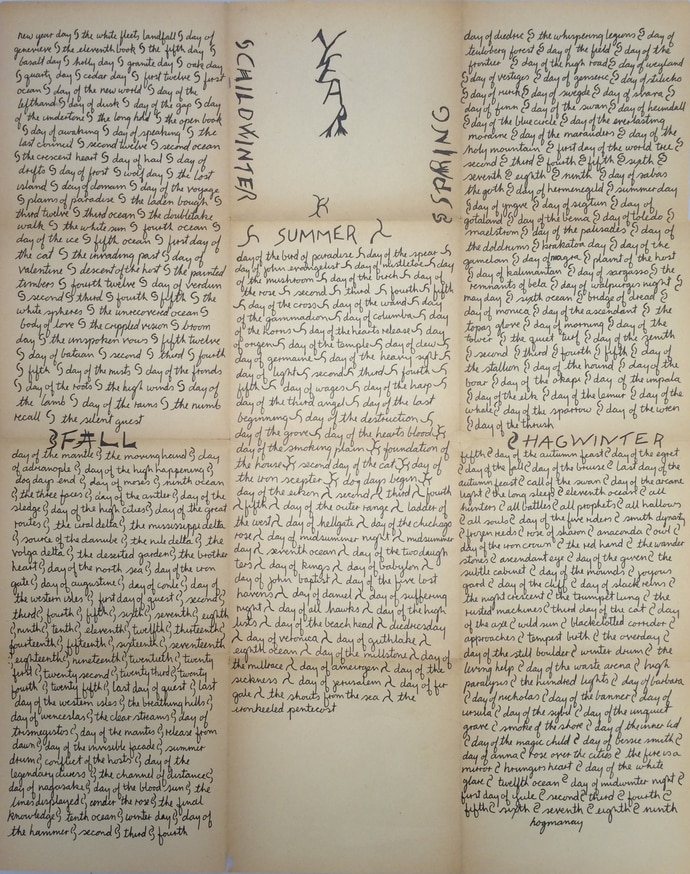 YEAR
CHILDWINTER
new year day the white fleets landfall day of
genevieve the eleventh book the fifth day
basalt day holly day granite day oak day
quartz day cedar day first twelve first
ocean day of the new world day of the
lefthand day of dusk day of the gap day
of the undertone the long hold the open book
day of awaking day of speaking the
last council second twelve second ocean
the crescent heart day of hail day of
drifts day of frost wolf day the lost
island day of domain day of the voyage
plains of paradise the laden bough
third twelve third ocean the doubletake
walk the white sun fourth ocean day
of the ice fifth ocean first day of
the cat the invading past day of
valentine descent of the host the painted
timbers fourth twelve day of verdun
second third fourth fifth the
white spheres the unrecovered ocean
body of love the crippled vision broom
day the unspoken vows fifth twelve
day of bataan second third fourth
fifth day of the mist day of the fronds
day of the roots the high winds day of
the lamb day of the rains the numb
recall the silent guest
SPRING
day of diedric the whispering legions day of
teutoberg forest day of the field day of the
frontier day of the high road day of weyland
day of vestiges day of genseric day of stilicho
day of nineh day of swegde day of svara
day of finn day of the swan day of heimdall
day of the blue circle day of the everlasting
moraine day of the marauders day of the
holy mountain first day of the world tree
second third fourth fifth sixth
seventh eighth ninth day of sabas
the goth day of hermenegild summer day
day of yngve day of sigtun day of
gotaland day of the bema day of toledo
maelstrom day of the palisades day of
the doldrums krakatoa day day of the
gamelan day of magon plaint of the host
day of kalimantan day of sargasso the
remnants of bela day of walpurgis night
may day sixth ocean bridge of dread
day of monica day of the ascendant the
topaz glove day of morning day of the
tower the quiet turf day of the zenith
second third fourth fifth day of
the stallion day of the hound day of the
boar day of the okapi day of the impala
day of the elk day of the lemur day of the
whale day of the sparrow day of the wren
day of the thrush
SUMMER
day of the bird of paradise day of the spear
day of john evangelist day of mistletoe day
of the mushroom day of the birch day of
the rose second third fourth fifth
day of the cross day of the wand day of
the gammadion day of columba day of
the horns day of the hearts release day
of origen day of the temple day of dew
day of germaine day of the heavy sight
day of light second third fourth
fifth day of wages day of the harp
day of the third angel day of the last
beginning day of the destruction
day of the grove day of the hearts blood
day of the smoking plain foundation of
the house second day of the cat day of
the iron scepter dog days begin
day of the eikon second third fourth
fifth day of the outer range ladder of
the west day of hellgate day of the chickago
rose day of midsummer night midsummer
day seventh ocean day of the two daugh
ters day of kings day of babylon
day of john baptist day of the five lost
havens day of daniel day of suffering
night day of all hawks day of the high
lists day of the beach head diedricsday
day of veronica day of guthlake
eighth ocean day of the millstone day of
the millrace day of ameirgen day of the
sickness day of jerusalem day of far
gale the shouts from the sea the
ironkeeled pentecost
FALL
day of the mantle the moving hand day
of adrianople day of the high happening
dog days end day of moses ninth ocean
the three faces day of the antler day of the
sledge day of the high cities day of the great
routes the ural delta the mississippi delta
source of the danube the nile delta the
volga delta the deserted garden the brother
heart day of the north sea day of the iron
gate day of augustine day of conle day of
the western isles first day of quest second
third fourth fifth sixth seventh eighth
ninth tenth eleventh twelfth thirteenth
fourteenth fifteenth sixteenth seventeenth
eighteenth nineteenth twentieth twenty
first twenty second twenty third twenty
fourth twenty fifth last day of quest last
day of the western isles the breathing hills
day of wenceslas the clear streams day of
trismegistos day of the mantis release from
dawn day of the invisible facade summer
drum conflict of the hosts day of the
legendary divers the channel of distance
day of nagasaki day of the blood sun the
lines displayed under the rose the final
knowledge tenth ocean winter day day of
the hammer second third fourth
HAGWINTER
fifth day of the autumn feast day of the egret
day of the fall day of the bruise last day of the
autumn feast call of the swan day of the arcane
light the long sleep eleventh ocean all
hunters all battles all prophets all hallows
all souls day of the five riders smith dynasty
frozen reeds rose of sharon anaconda owl
day of the iron crown the red hand the wander
stones ascendant eye day of the given the
subtle cabinet day of the mounds joyous
gard day of the cliff day of slack reins
the night crescent the trumpet lung the
rusted machines third day of the cat day
of the axe wild sun blackcotted corridor
approaches tempest birth the overday
day of the still boulder winter drum the
living help day of the waste arena high
paralysis the hundred lights day of barbara
day of nicholas day of the banner day of
ursula day of the sybil day of the unquiet
grave smoke of the shore day of thrinner lid
day of the magic child day of bessie smith
day of anna rose over the cities the fire is a
mirror hrungnirs heart day of the white
glare twelfth ocean day of midwinter night
first day of yule second third fourth
fifth sixth seventh eighth ninth
hogmanay